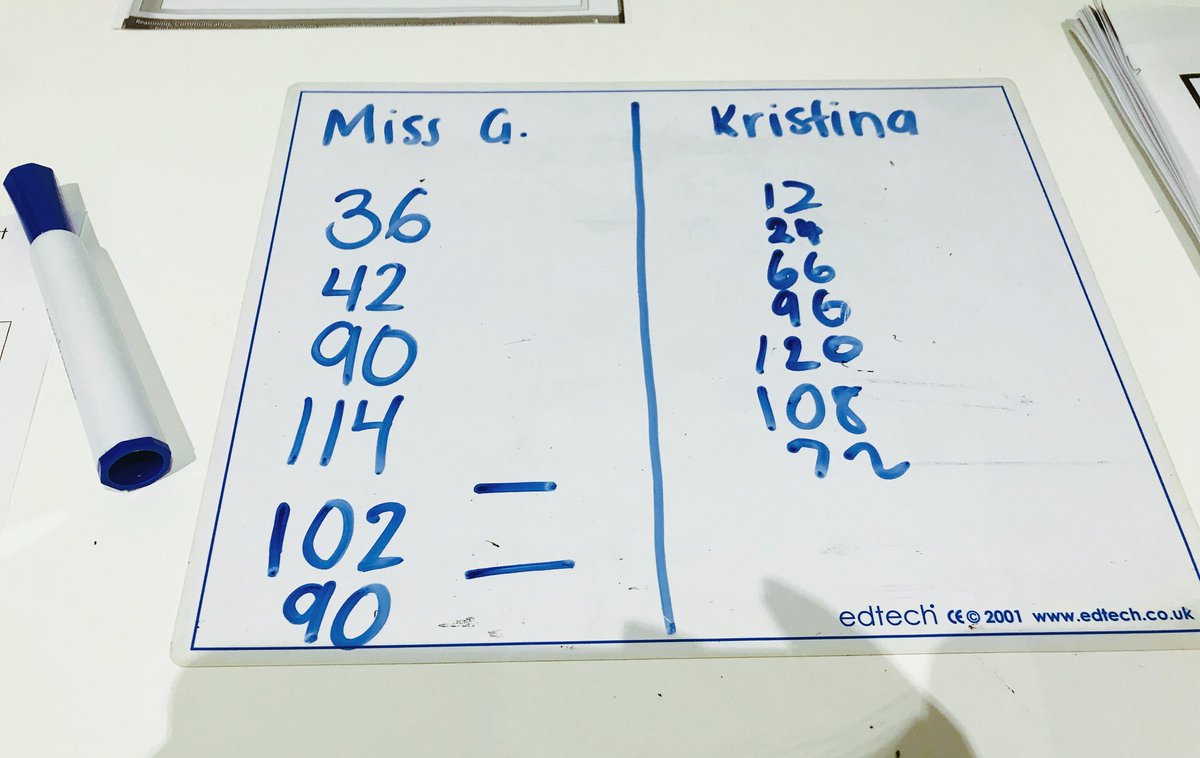 Reasoning, Communicating,
Miss G.
36
42
90
114
102
90
Kristina
12
24
66
96
120
108
72
edtech CE © 2001 www.edtech.co.uk